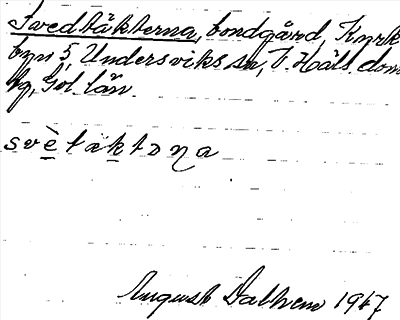 Svedtäkterna, bondgård, Kyrk
byn 5, Undersviks sn, V. Häls. dom
sg, Gvl. län
svètäktɒṇa
August Dalhem 1947